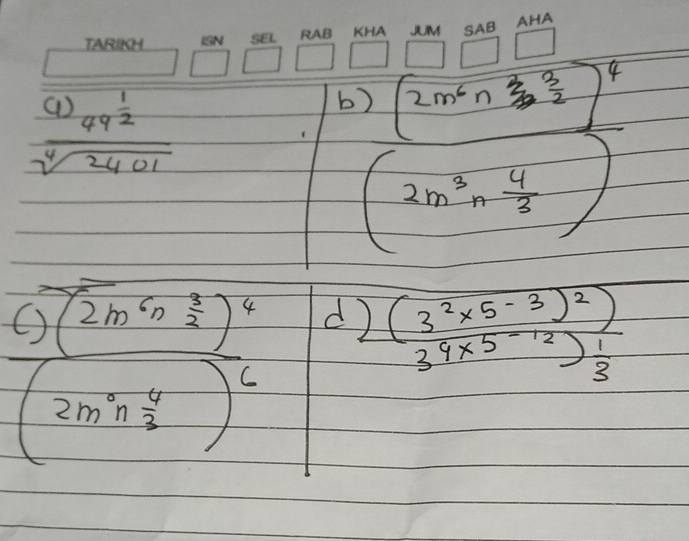 TARIKH ISN SEL RAB KHA JUM SAB AHA
a) 49^(1/2)
⁴√2401
b) (2m⁶n^(3/2))⁴
(2m³n^(4/3))
c) (2m⁶n^(3/2))⁴
(2m⁰n^(4/3))⁶
d) (3² × 5⁻³)²)
3⁹ × 5⁻¹²)^(1/3)